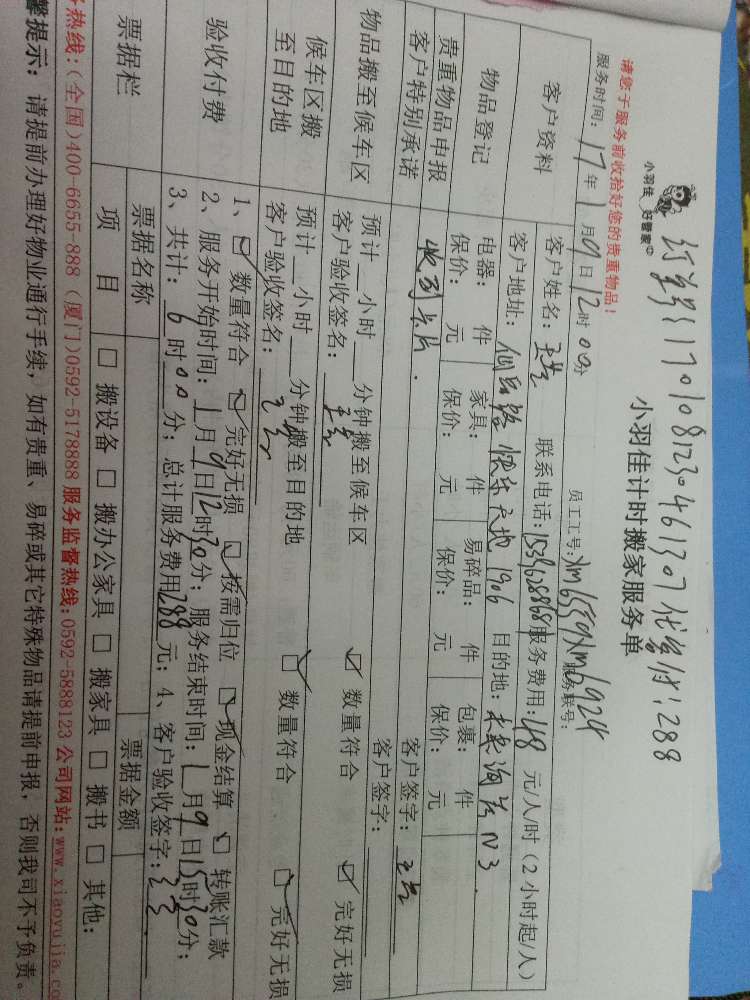 订单号:1701081230461307 代垫付:288
小羽佳 好管家
小羽佳计时搬家服务单
请您于服务前收拾好您的贵重物品!
员工工号:xm6559 xm6924
服务时间:17年1月9日12时00分 服务联号:
客户资料
客户姓名: 联系电话: 服务费用:48元/人/时(2小时起/人)
客户地址:仙岳路 快乐天地 1906 目的地: N3
物品登记
电器: 件 家具: 件 易碎品: 件 包裹: 件
保价: 元 保价: 元 保价: 元 保价: 元
贵重物品申报
客户特别承诺
收到卡片. 客户签字:
客户签字:
物品搬至候车区
预计__小时__分钟搬至候车区 ☑ 数量符合 ☑ 完好无损
客户验收签名:
候车区搬
至目的地
预计__小时__分钟搬至目的地 ☑ 数量符合 ☑ 完好无损
客户验收签名:
验收付费
1、☑ 数量符合 ☑ 完好无损 ☑ 按需归位 ☑ 现金结算 ☑ 转账汇款
2、服务开始时间:1月9日12时30分;服务结束时间:1月9日15时30分;
3、共计:6时00分;总计服务费用288元;4、客户验收签字:
票据栏
票据名称 票据金额
项 目 □ 搬设备 □ 搬办公家具 □ 搬家具 □ 搬书 □ 其他:
务热线:(全国)400-6655-888 (厦门)0592-5178888 服务监督热线:0592-5888123 公司网站:www.xiaoyujia.co
馨提示:请提前办理好物业通行手续,如有贵重、易碎或其它特殊物品请提前申报,否则我司不予负责。